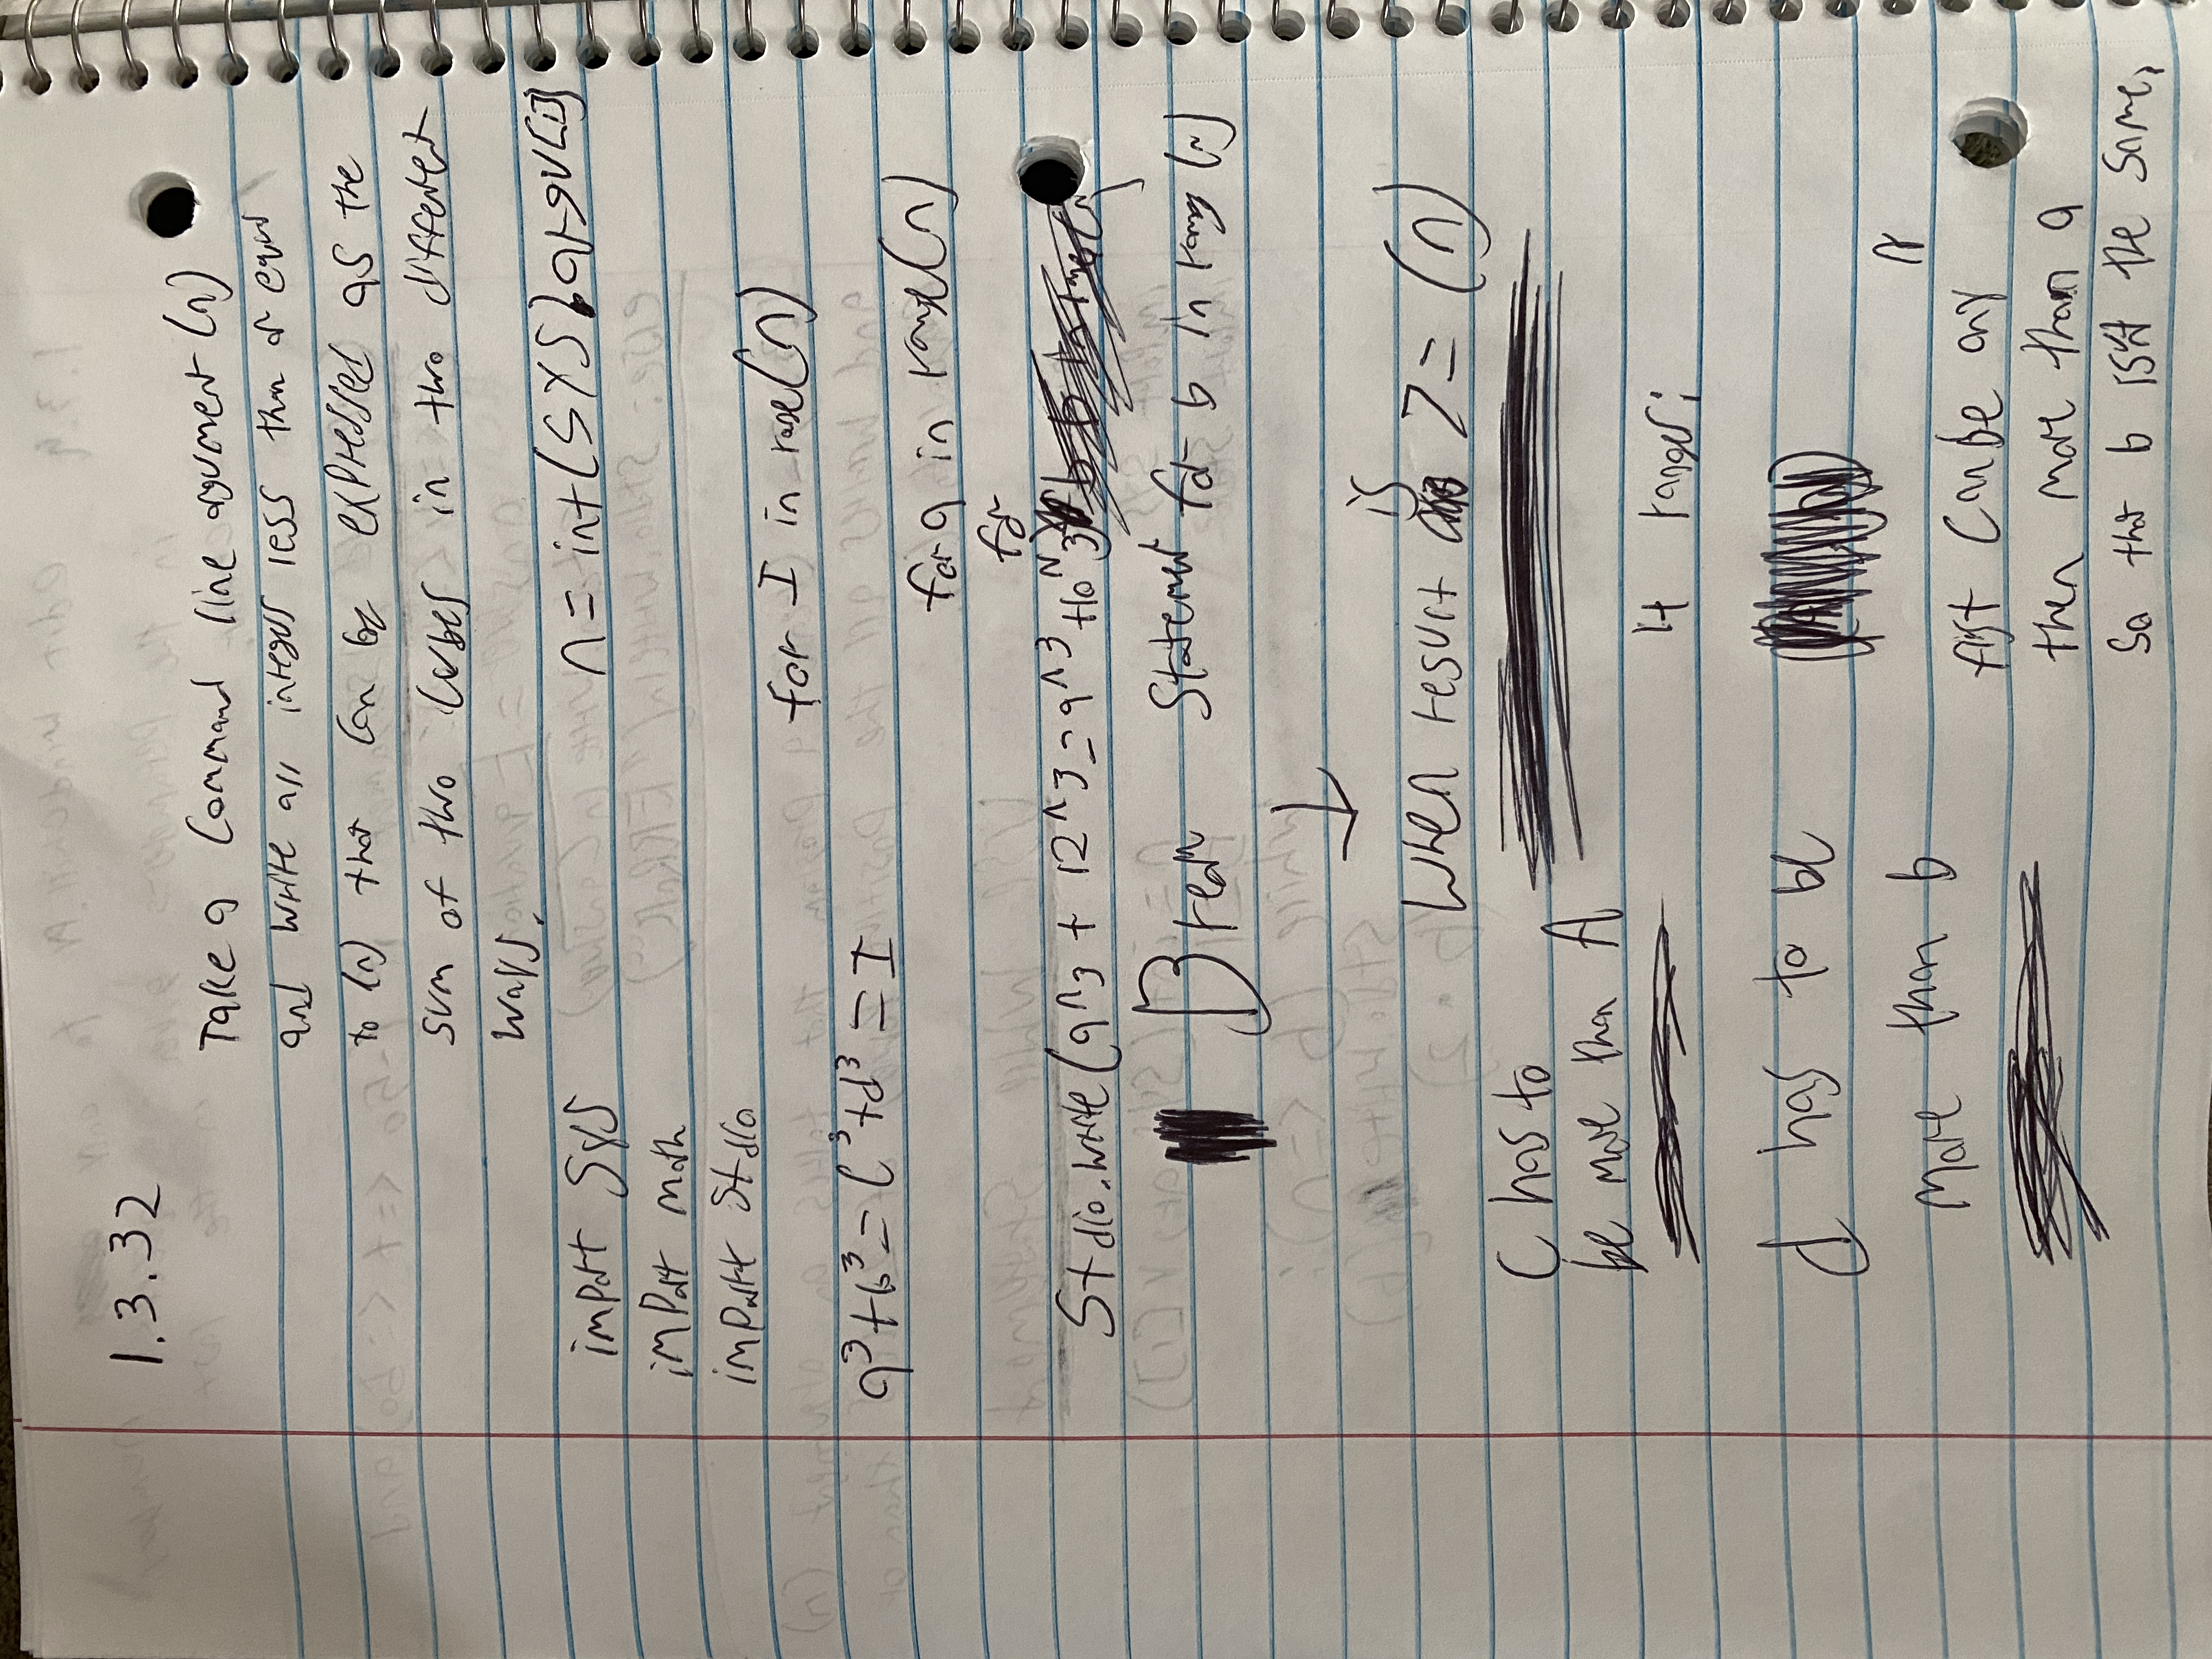 1.3.32
Take a Command line argument (n)
and write all integers less than or equal
to (n) that can be expressed as the
sum of two cubes in two different
ways.
import sys
n = int(sys.argv[1])
import math
import stdio
for I in range(n)
a³+b³=c³+d³=I
for a in range(n)
for
Stdio.write(9^3 + 12^3=9^3+10^3)
Break Statement for b in range (n)
↓
When result is >= (n)
C has to
be more than A
4 ranges;
d has to be
more than b
first can be any
then more than a
So that b isn't the same,